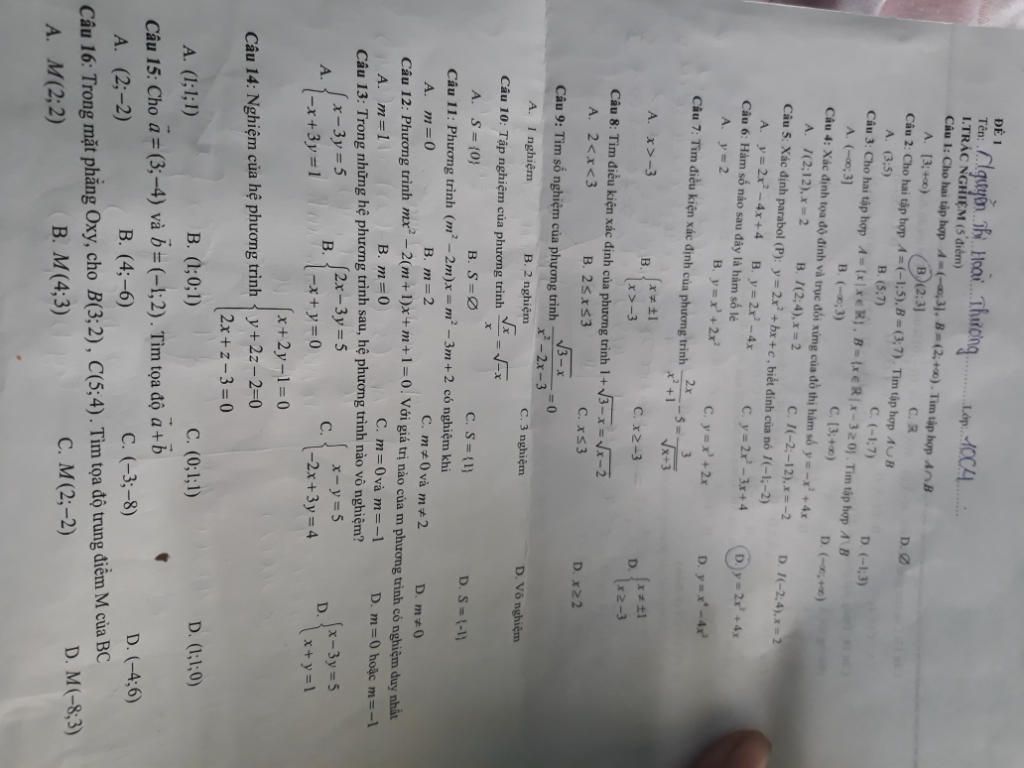 ĐỀ 1
Tên: Nguyễn Thị Hoài Thương Lớp: 10C4
I.TRẮC NGHIỆM (5 điểm)
Câu 1: Cho hai tập hợp A = (-∞;3], B = (2;+∞). Tìm tập hợp A∩B
A. [3;+∞) B. (2;3] C. ℝ D. ∅
Câu 2: Cho hai tập hợp A = (-1;5), B = (3;7), Tìm tập hợp A∪B
A. (3;5) B. (5;7) C. (-1;7) D. (-1;3)
Câu 3: Cho hai tập hợp A = {x | x∈ℝ}, B = {x∈ℝ | x-3≥0}. Tìm tập hợp A \ B
A. (-∞;3] B. (-∞;3) C. [3;+∞) D. (-∞;+∞)
Câu 4: Xác định tọa độ đỉnh và trục đối xứng của đồ thị hàm số y = -x² + 4x
A. I(2;12), x = 2 B. I(2;4), x = 2 C. I(-2;-12), x = -2 D. I(-2;4), x = 2
Câu 5. Xác định parabol (P): y = 2x² + bx + c, biết đỉnh của nó I(-1;-2)
A. y = 2x² - 4x + 4 B. y = 2x² - 4x C. y = 2x² - 3x + 4 D. y = 2x² + 4x
Câu 6: Hàm số nào sau đây là hàm số lẻ
A. y = 2 B. y = x³ + 2x² C. y = x³ + 2x D. y = x⁴ - 4x²
Câu 7: Tìm điều kiện xác định của phương trình 2x/(x²+1) - 5 = 3/√(x+3)
A. x > -3 B. {x ≠ ±1; x > -3 C. x ≥ -3 D. {x ≠ ±1; x ≥ -3
Câu 8: Tìm điều kiện xác định của phương trình 1 + √(3-x) = √(x-2)
A. 2 < x < 3 B. 2 ≤ x ≤ 3 C. x ≤ 3 D. x ≥ 2
Câu 9: Tìm số nghiệm của phương trình √(3-x)/(x²-2x-3) = 0
A. 1 nghiệm B. 2 nghiệm C. 3 nghiệm D. Vô nghiệm
Câu 10: Tập nghiệm của phương trình √x/x = √(-x)
A. S = {0} B. S = ∅ C. S = {1} D. S = {-1}
Câu 11: Phương trình (m² - 2m)x = m² - 3m + 2 có nghiệm khi
A. m = 0 B. m = 2 C. m ≠ 0 và m ≠ 2 D. m ≠ 0
Câu 12: Phương trình mx² - 2(m+1)x + m + 1 = 0. Với giá trị nào của m phương trình có nghiệm duy nhất
A. m = 1 B. m = 0 C. m = 0 và m = -1 D. m = 0 hoặc m = -1
Câu 13: Trong những hệ phương trình sau, hệ phương trình nào vô nghiệm?
A. {x - 3y = 5; -x + 3y = 1 B. {2x - 3y = 5; -x + y = 0 C. {x - y = 5; -2x + 3y = 4 D. {x - 3y = 5; x + y = 1
Câu 14: Nghiệm của hệ phương trình {x + 2y - 1 = 0; y + 2z - 2 = 0; 2x + z - 3 = 0
A. (1;1;1) B. (1;0;1) C. (0;1;1) D. (1;1;0)
Câu 15: Cho a⃗ = (3;-4) và b⃗ = (-1;2). Tìm tọa độ a⃗ + b⃗
A. (2;-2) B. (4;-6) C. (-3;-8) D. (-4;6)
Câu 16: Trong mặt phẳng Oxy, cho B(3;2), C(5;4). Tìm tọa độ trung điểm M của BC
A. M(2;2) B. M(4;3) C. M(2;-2) D. M(-8;3)